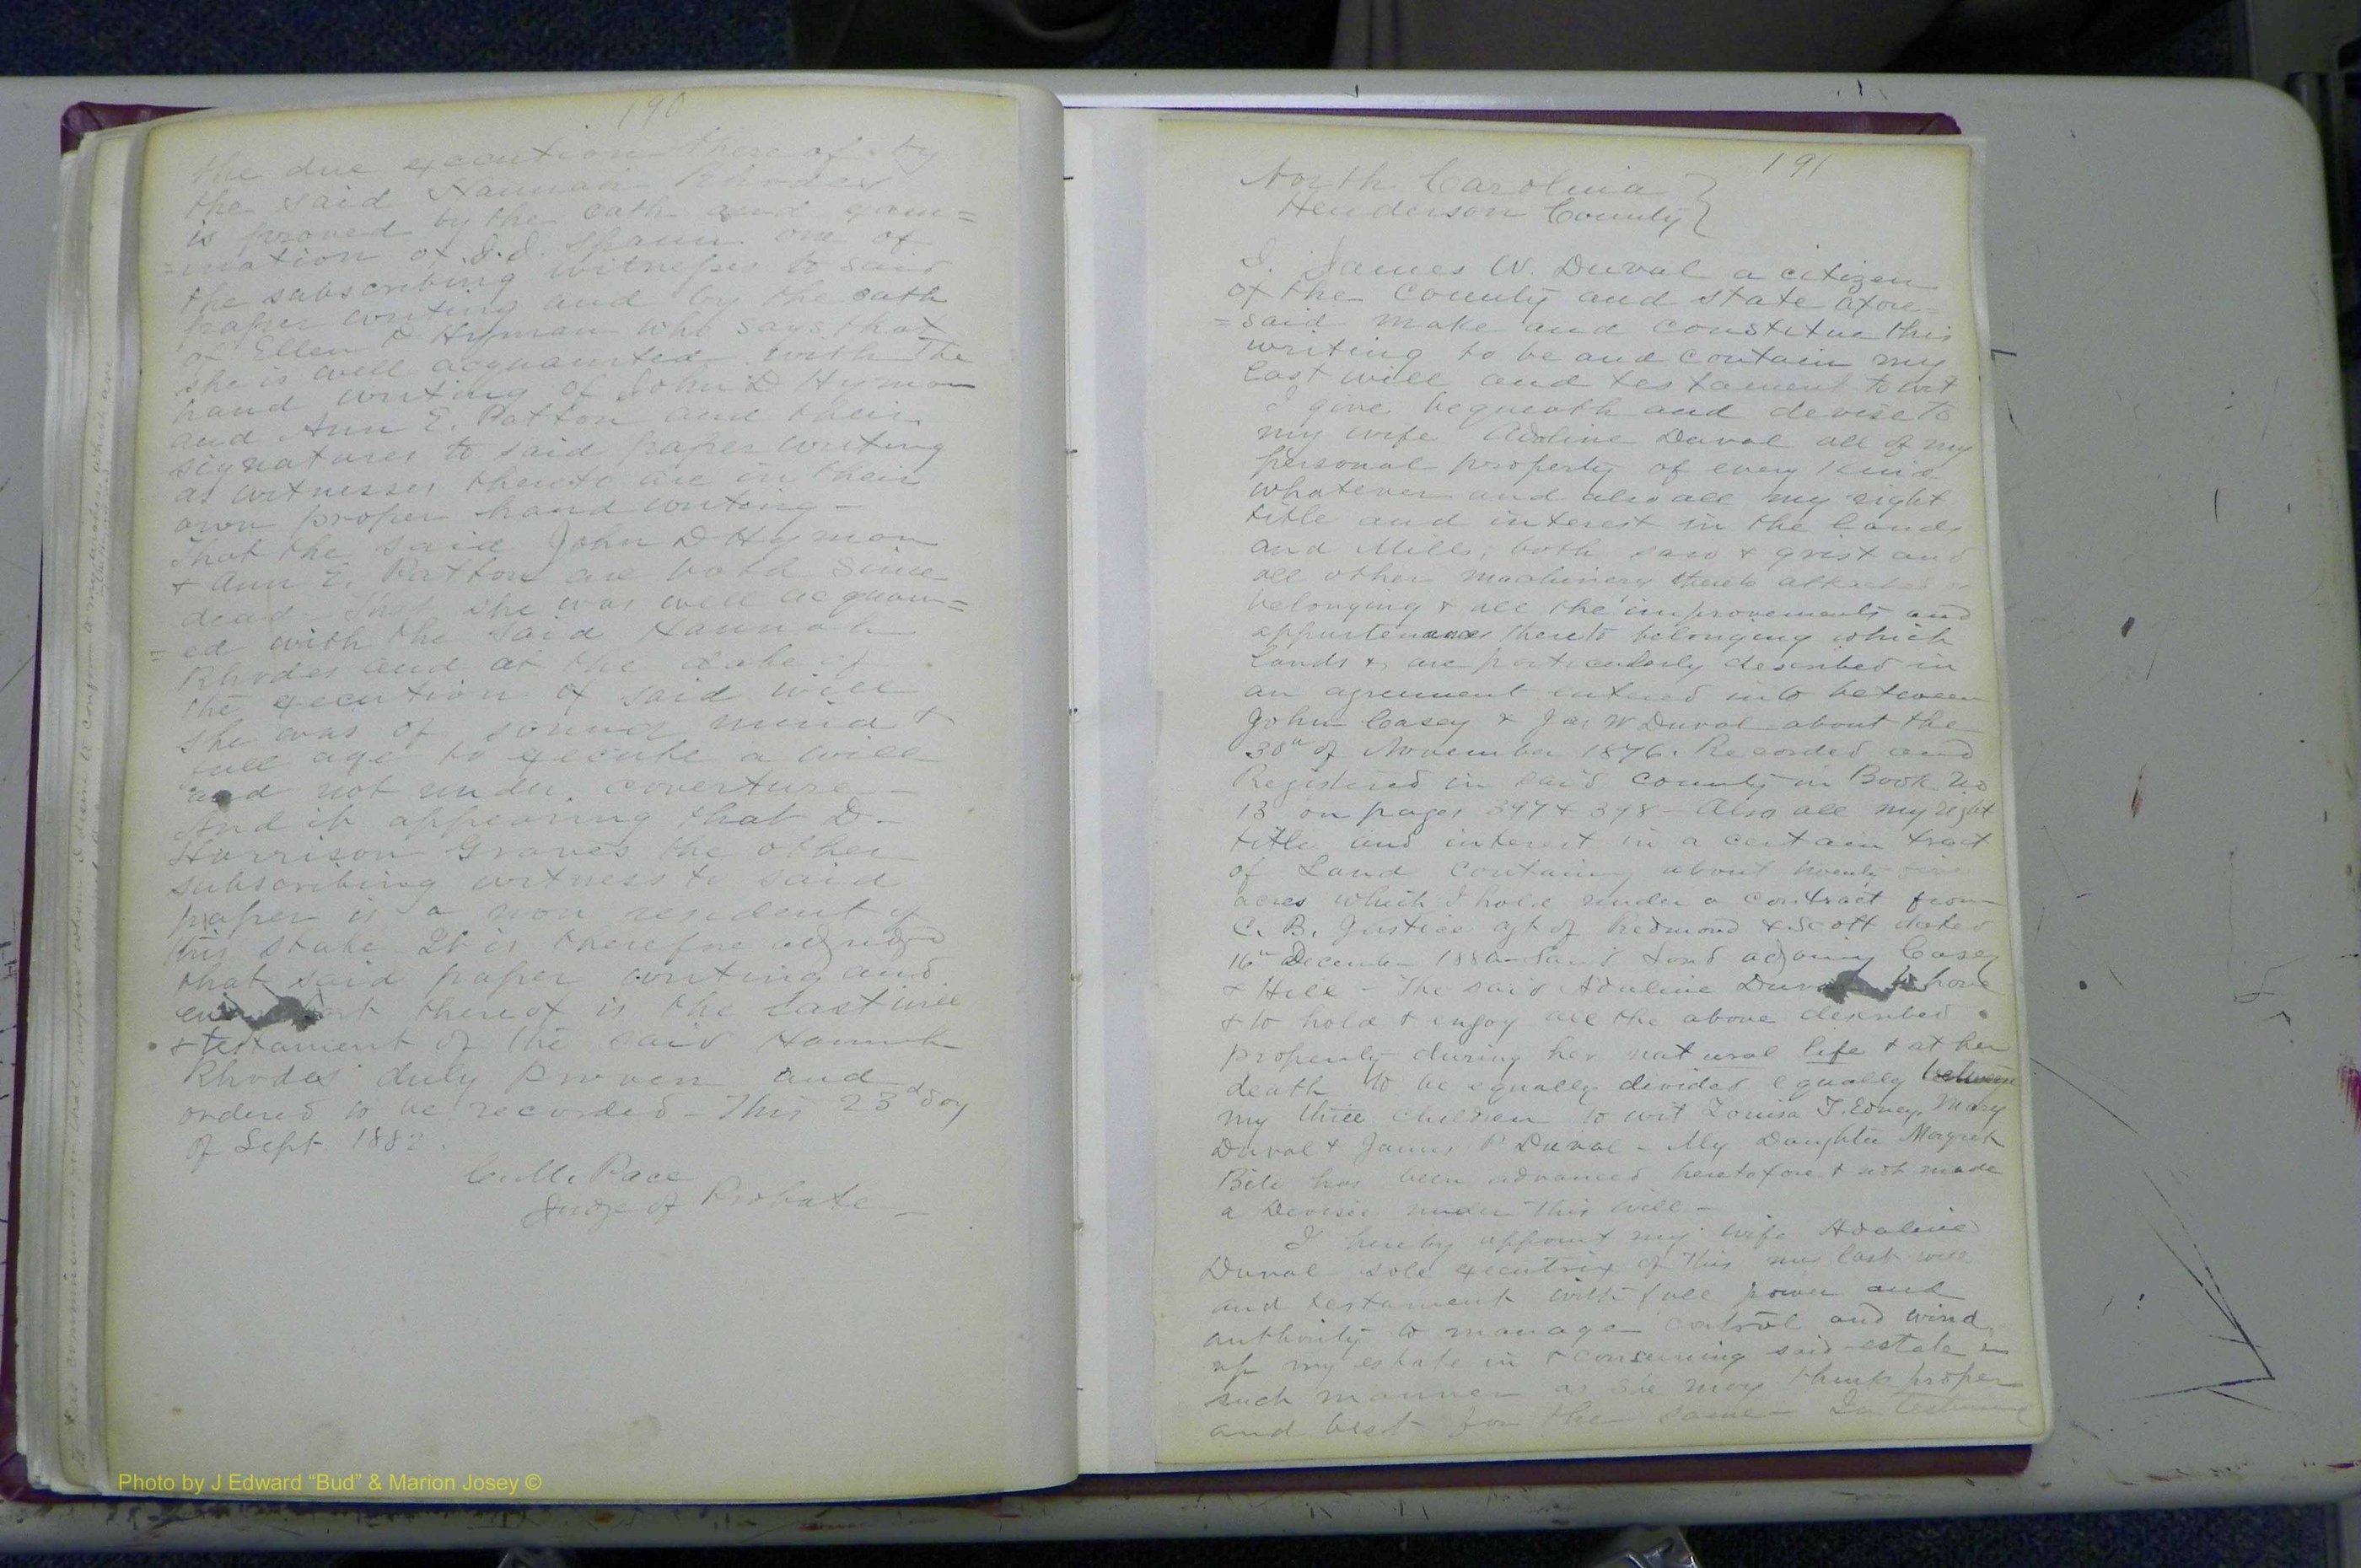 190
the due execution thereof by
the said Hannah Rhodes
is proved by the oath and exam=
=ination of J.J. Spann one of
the subscribing witnesses to said
paper writing and by the oath
of Ellen & Hyman who says that
she is well acquainted with the
hand writing of John D Hyman
and Ann E. Patton and their
signatures to said paper writing
as witnesses thereto are in their
own proper hand writing -
That the said John D Hyman
& Ann E. Patton are both since
dead - That she was well acquain=
=ed with the said Hannah
Rhodes and at the date of
the execution of said will
she was of sound mind &
full age to execute a will
and not under coverture -
And it appearing that D-
Harrison Graves the other
subscribing witness to said
paper is a non resident of
this state - It is therefore adjudged
that said paper writing and
thereof is the last will
& testament of the said Hannah
Rhodes duly proven and
ordered to be recorded - This 23d day
of Sept 1882.
C.M. Pace
Judge of Probate -
191
North Carolina }
Henderson County }
I. James W. Duval a citizen
of the County and state afore=
=said make and constitue this
writing to be and contain my
last will and testament to wit
I give bequeath and devise to
my wife Adaline Duval all of my
personal property of every kind
whatever and also all my right
title and interest in the lands
and Mills, both saw & grist and
all other machinery thereto attached or
belonging & all the improvements and
appurtenances thereto belonging which
lands & are particularly described in
an agreement entered into between
John Casey & Jas W Duval about the
30th of November 1876. Recorded and
Registered in said county in Book No
13 on pages 397 & 398 - Also all my right
title and interest in a certain tract
of Land containing about twenty five
acres which I hold under a contract from
C. B. Justice agt of Redmond & Scott dated
16th December 1880 - Said Land adjoining Casey
& Hill - The said Adaline Duval to have
& to hold & enjoy all the above described
property during her natural life & at her
death to be equally divided equally between
my three children to wit Louisa T. Edney, Mary
Duval & James P. Duval - My Daughter Margret
has been advanced heretofore & not made
a Devisee under this will -
I hereby appoint my wife Adaline
Duval sole executrix of this my last will
and testament with full power and
authority to manage control and wind
up my estate in & concerning said estate in
such manner as she may think proper
and best for the same - In testimony
Photo by J Edward “Bud” & Marion Josey ©